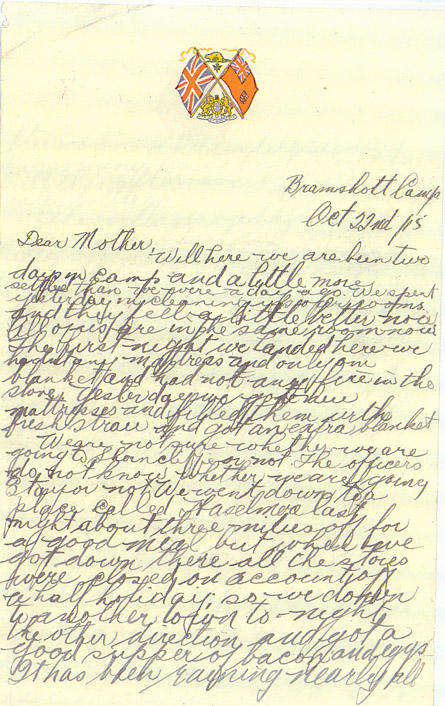 Bramshott Camp
Oct 22nd /15
Dear Mother,
Well here we are been two
days in camp and a little more
settled than we were a day ago. We spent
yesterday in cleaning up our rooms
and they feel a little better now.
All of us are in the same room now
the first night we landed here we
hadnt any mattress and only one
blanket and had not any fire in the
stove. Yesterday we got new
mattresses and filled them with
fresh straw and got an extra blanket
We are not sure whether we are
going to Shorncliffe or not. The officers
do not know whether we are going
to stay or not. We went down to a
place called Haselmea last
night about three miles off for
a good meal but when we
got down there all the stores
were closed on account of
a half holiday, so we down
to another town to-night
the other direction and got a
good supper of bacon and eggs.
It has been raining nearly all